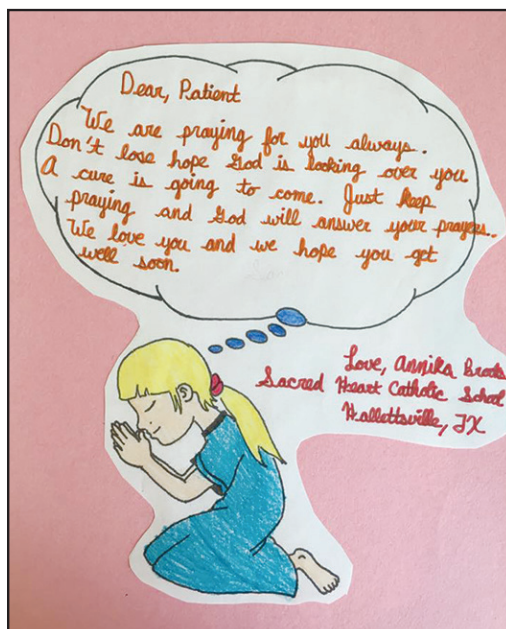 Dear, Patient
We are praying for you always.
Don't lose hope God is looking over you.
A cure is going to come. Just keep
praying and God will answer your prayers.
We love you and we hope you get
well soon.
Love, Annika Brooks
Sacred Heart Catholic School
Hallettsville, TX